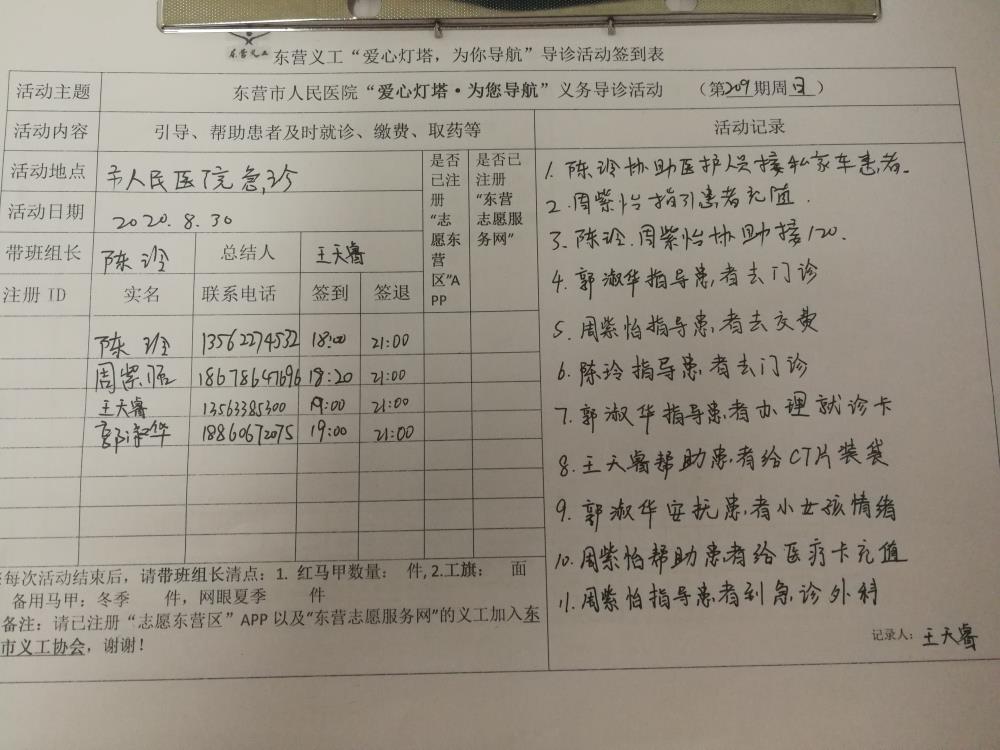 东营义工
东营义工“爱心灯塔，为你导航”导诊活动签到表
活动主题
东营市人民医院“爱心灯塔·为您导航”义务导诊活动 （第209期周日）
活动内容
引导、帮助患者及时就诊、缴费、取药等
活动地点
市人民医院急诊
活动日期
2020.8.30
是否已注册“志愿东营区”APP
是否已注册“东营志愿服务网”
带班组长 陈玲 总结人 王天睿
注册 ID 实名 联系电话 签到 签退
陈玲 13562274532 18:00 21:00
周紫怡 18678647696 18:20 21:00
王天睿 13563385300 19:00 21:00
郭淑华 18860672075 19:00 21:00
每次活动结束后，请带班组长清点：1. 红马甲数量： 件，2.工旗： 面
备用马甲：冬季 件，网眼夏季 件
备注：请已注册“志愿东营区”APP 以及“东营志愿服务网”的义工加入东
市义工协会，谢谢！
活动记录
1. 陈玲协助医护人员接私家车患者.
2. 周紫怡指引患者充值.
3. 陈玲.周紫怡协助接120.
4. 郭淑华指导患者去门诊
5. 周紫怡指导患者去交费
6. 陈玲指导患者去门诊
7. 郭淑华指导患者办理就诊卡
8. 王天睿帮助患者给CT片装袋
9. 郭淑华安抚患者小女孩情绪
10. 周紫怡帮助患者给医疗卡充值
11. 周紫怡指导患者到急诊外科
记录人：王天睿